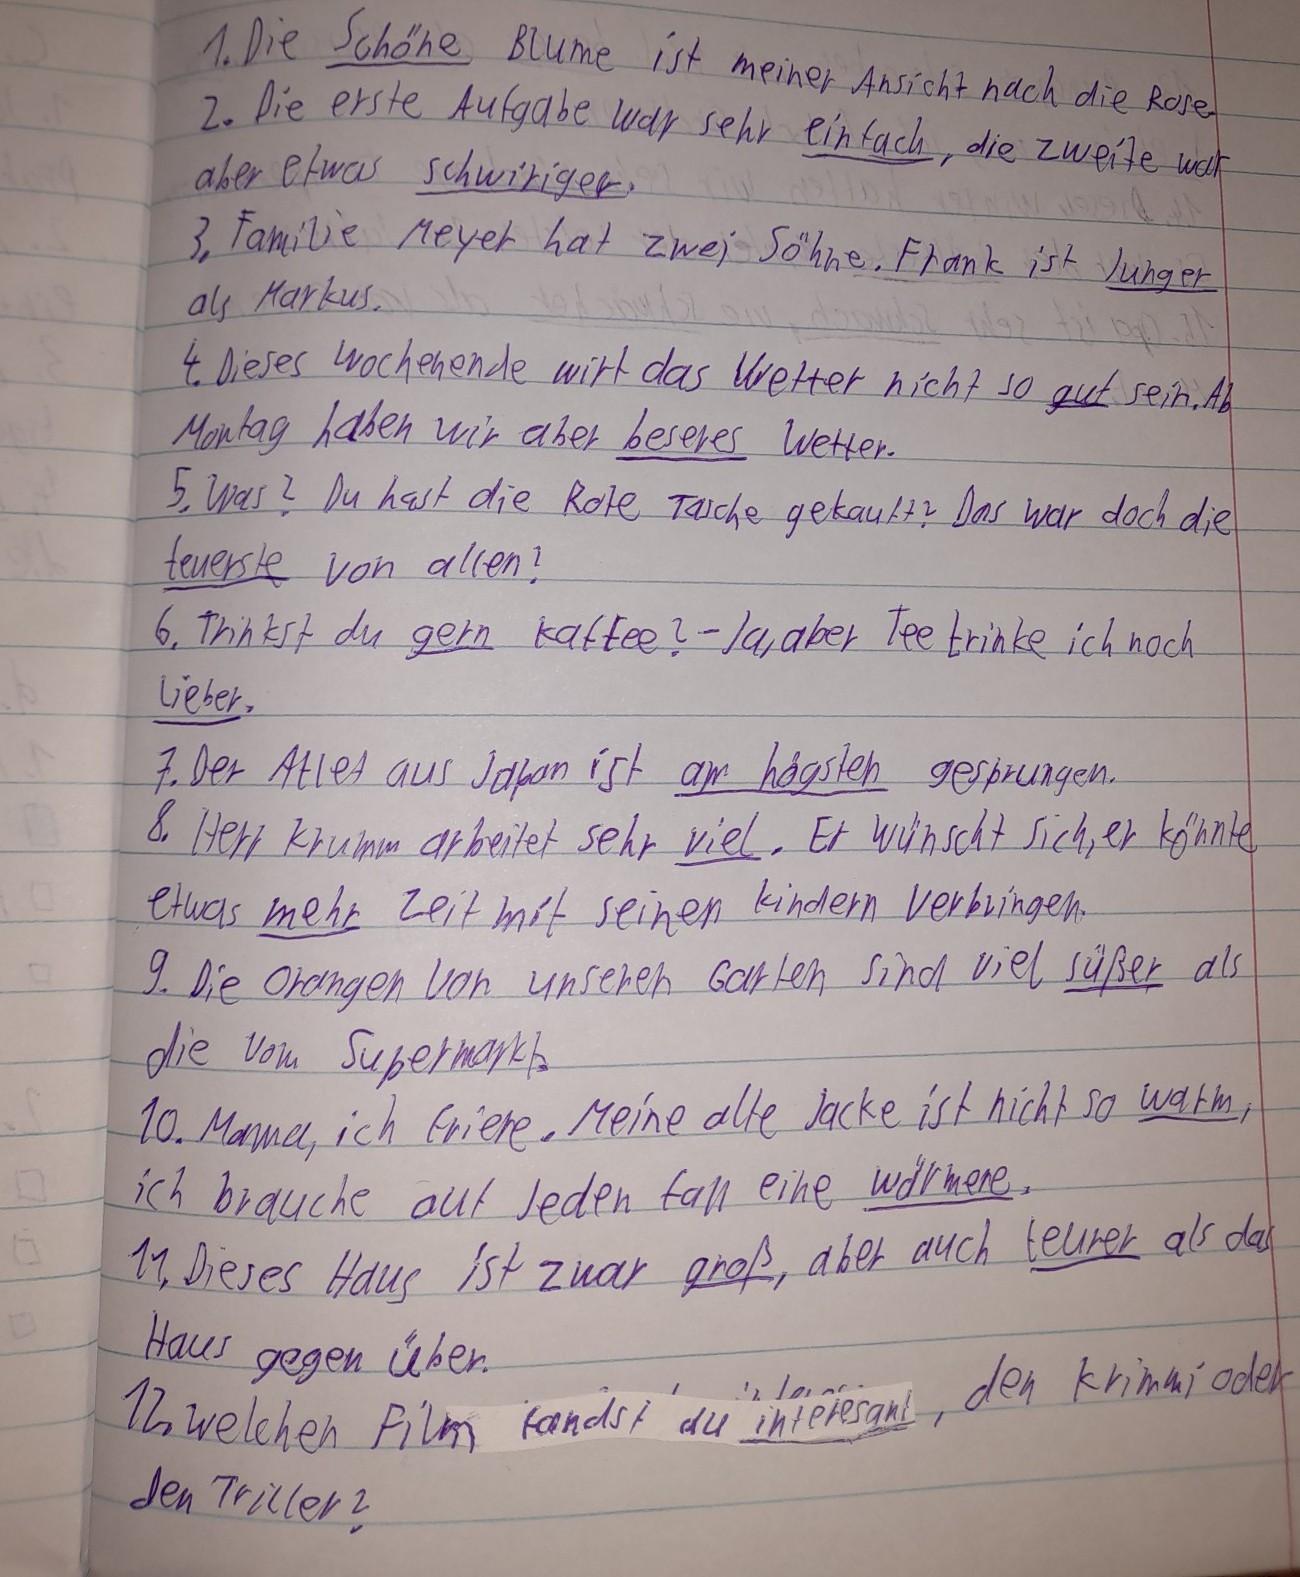 1. Die Schöne Blume ist meiner Ansicht nach die Rose.
2. Die erste Aufgabe war sehr einfach, die zweite war
aber etwas schwiriger.
3. Familie Meyer hat zwei Söhne. Frank ist Junger
als Markus.
4. Dieses Wochenende wirt das Wetter nicht so gut sein. Ab
Montag haben wir aber beseres Wetter.
5. Was? Du hast die Rote Tasche gekauft? Das war doch die
teuerste von allen?
6. Trinkst du gern kaffee? - Ja, aber Tee trinke ich noch
Lieber.
7. Der Atlet aus Japan ist am högsten gesprungen.
8. Herr Krumm arbeitet sehr viel. Er wünscht sich, er könnte
etwas mehr Zeit mit seinen kindern verbringen.
9. Die Orangen von unseren Garten sind viel süßer als
die vom Supermarkt.
10. Mama, ich friere. Meine alte Jacke ist nicht so warm,
ich brauche auf Jeden fall eine wärmere.
11. Dieses Haus ist zwar groß, aber auch teurer als das
Haus gegen über.
12. welchen Film fandst du interesant, den Krimmi oder
den Triller?